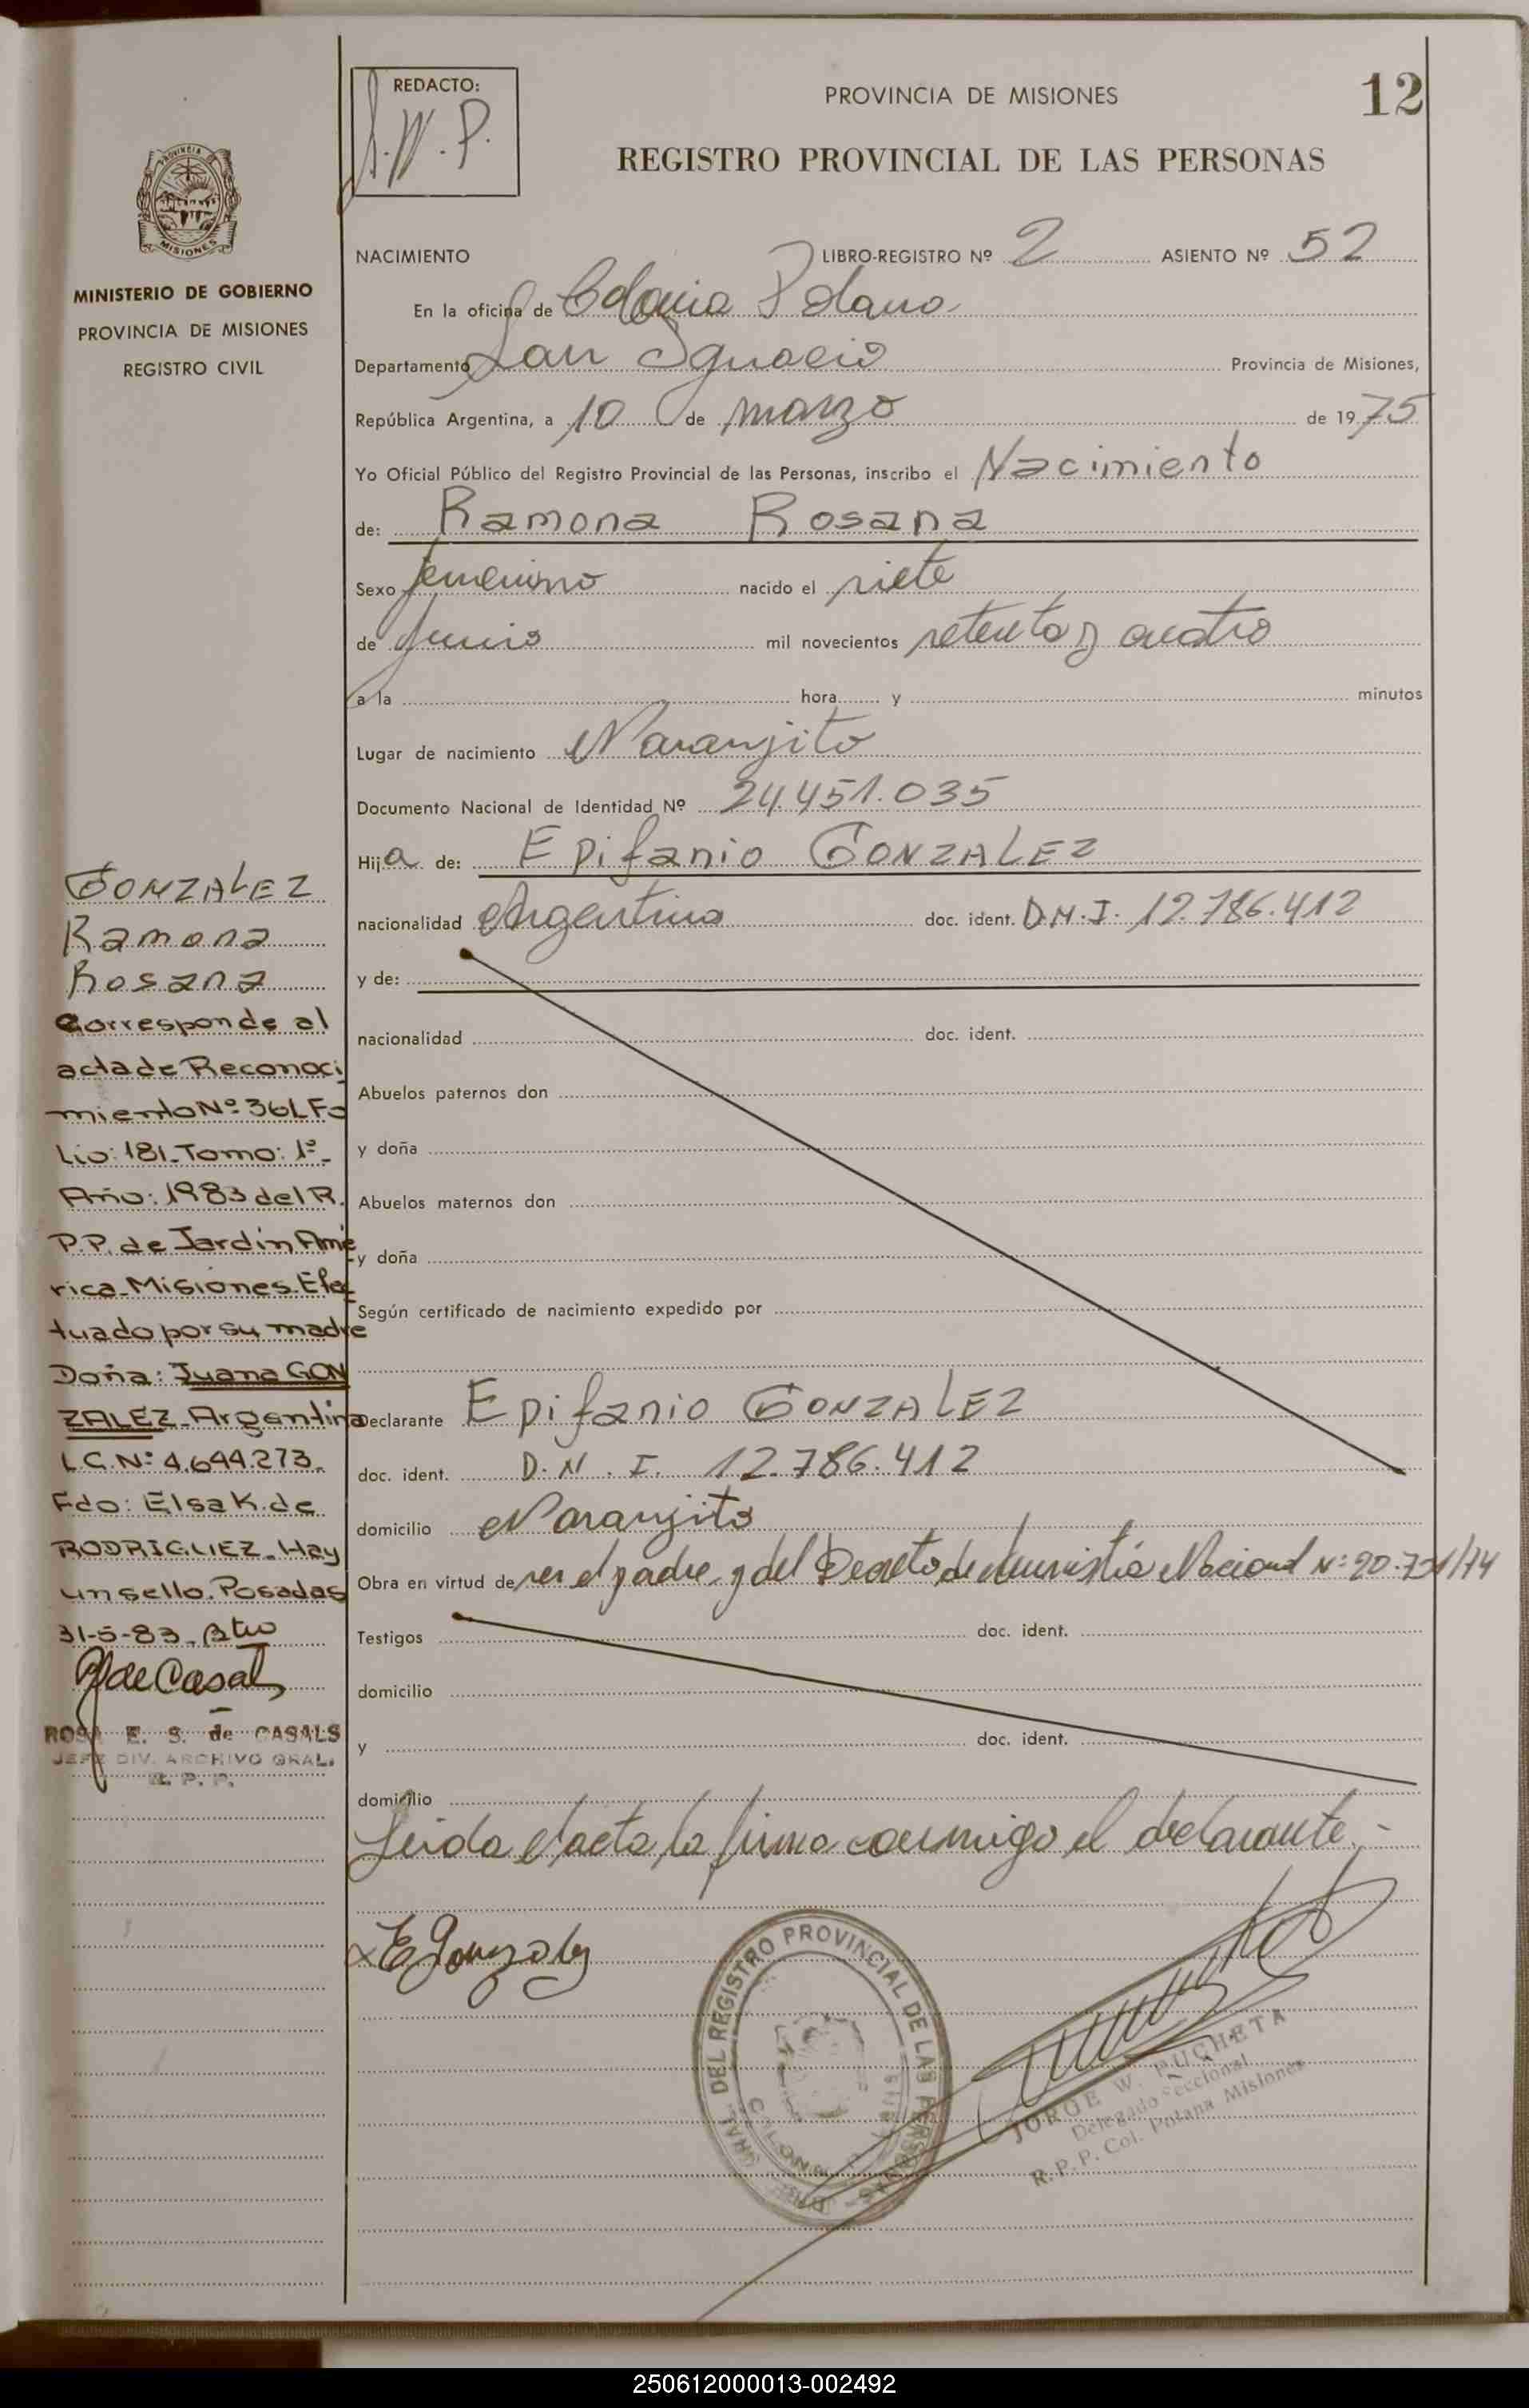 REDACTO:
J.W.P.
PROVINCIA DE MISIONES
12
REGISTRO PROVINCIAL DE LAS PERSONAS
PROVINCIA
MISIONES
MINISTERIO DE GOBIERNO
PROVINCIA DE MISIONES
REGISTRO CIVIL
NACIMIENTO LIBRO-REGISTRO Nº 2 ASIENTO Nº 52
En la oficina de Colonia Polana
Departamento San Ignacio Provincia de Misiones,
República Argentina, a 10 de marzo de 1975
Yo Oficial Público del Registro Provincial de las Personas, inscribo el Nacimiento
de: Ramona Rosana
Sexo femenino nacido el siete
de junio mil novecientos setenta y cuatro
a la hora y minutos
Lugar de nacimiento Naranjito
Documento Nacional de Identidad Nº 24.451.035
Hija de: Epifanio GONZALEZ
nacionalidad Argentina doc. ident. D.N.I. 12.786.412
y de:
nacionalidad doc. ident.
Abuelos paternos don
y doña
Abuelos maternos don
y doña
Según certificado de nacimiento expedido por
Declarante Epifanio GONZALEZ
doc. ident. D.N.I. 12.786.412
domicilio Naranjito
Obra en virtud de ser el padre y del Decreto de Amnistía Nacional Nº 20.751/74
Testigos doc. ident.
domicilio
y doc. ident.
domicilio
Leida el acta la firma conmigo el declarante.-
GONZALEZ
Ramona
Rosana
Corresponde al
acta de Reconoci
miento Nº 361 Fo
lio: 181 Tomo: 1º-
Año: 1983 del R.
P.P. de Jardín Amé
rica-Misiones. Efec
tuado por su madre
Doña: Juana GON
ZALEZ-Argentina
L.C.Nº 4.644.273.
Fdo: Elsa K. de
RODRIGUEZ-Hay
un sello. Posadas
31-5-83.
de Casals
ROSA E. S. de CASALS
JEFE DIV. ARCHIVO GRAL.
R. P. P.
E Gonzalez
DEL REGISTRO PROVINCIAL DE LAS PERSONAS
JORGE W. PUCHETA
Delegado Seccional
R. P. P. Col. Polana Misiones
250612000013-002492